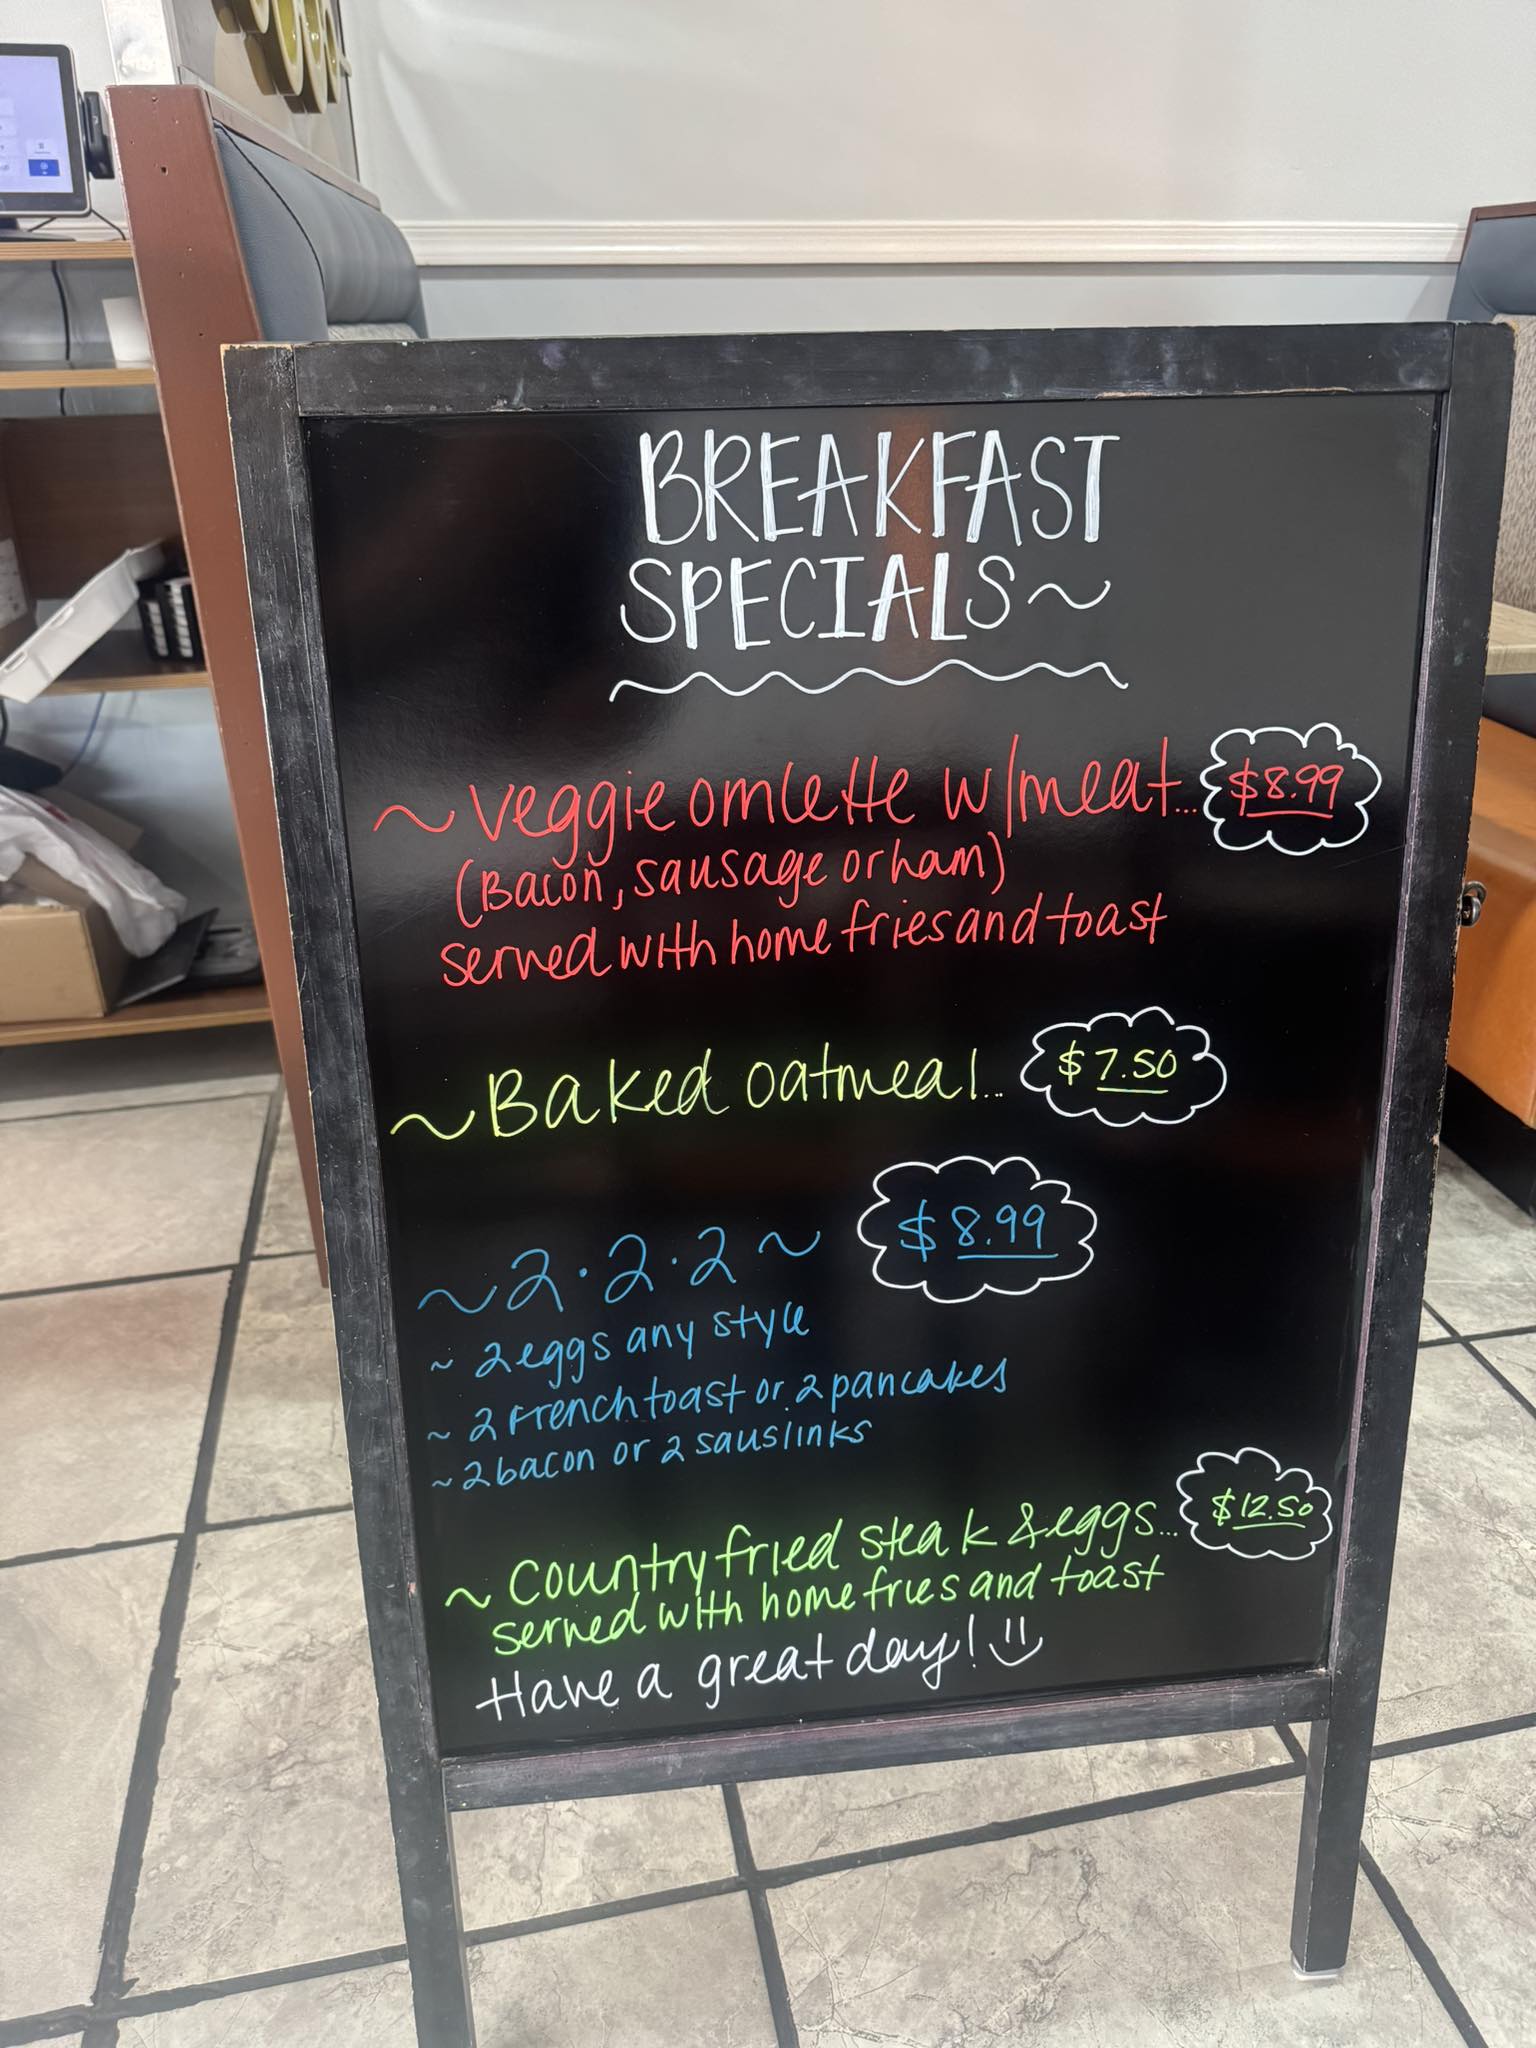 BREAKFAST
SPECIALS~
~ veggie omlette w/meat... $8.99
(Bacon, sausage or ham)
served with home fries and toast
~ Baked oatmeal... $7.50
~ 2.2.2 ~ $8.99
~ 2 eggs any style
~ 2 French toast or 2 pancakes
~ 2 bacon or 2 saus links
~ Country fried steak & eggs... $12.50
served with home fries and toast
Have a great day!